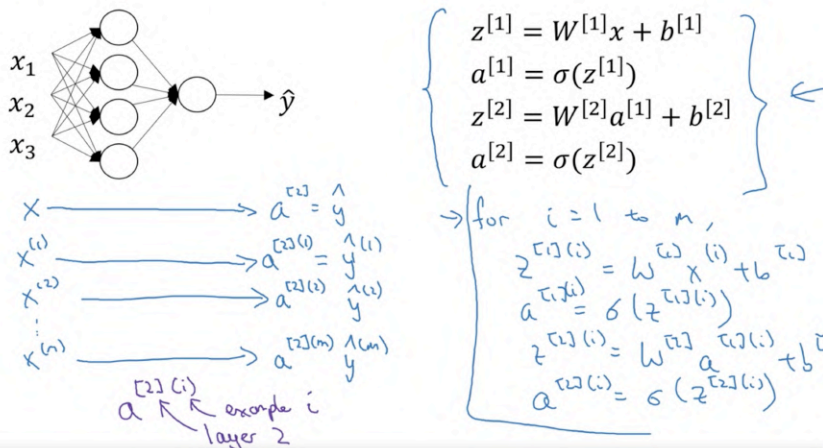 x₁
x₂
x₃
ŷ
z^[1] = W^[1]x + b^[1]
a^[1] = σ(z^[1])
z^[2] = W^[2]a^[1] + b^[2]
a^[2] = σ(z^[2])
x → a^[2] = ŷ
x^(1) → a^[2](1) = ŷ^(1)
x^(2) → a^[2](2) ŷ^(2)
⋮
x^(m) → a^[2](m) ŷ^(m)
a^[2](i)
example i
layer 2
→ for i = 1 to m,
z^[1](i) = W^[1] x^(i) + b^[1]
a^[1](i) = σ(z^[1](i))
z^[2](i) = W^[2] a^[1](i) + b^[
a^[2](i) = σ(z^[2](i))